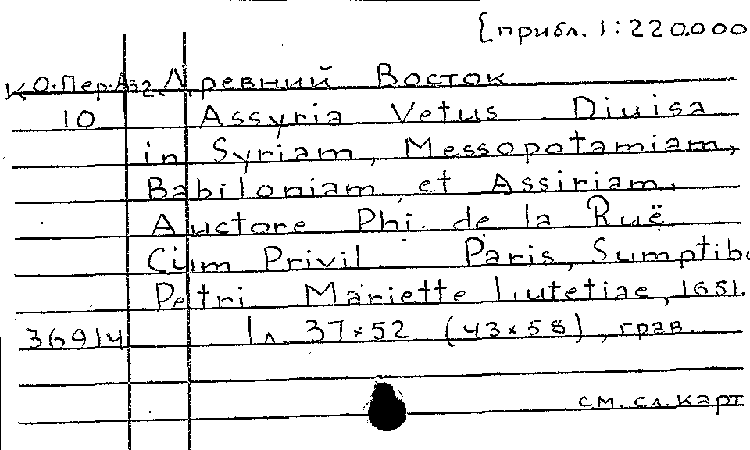 [прибл. 1:220.000
К.О.Пер.Аз2. Древний Восток
10 Assyria Vetus Diuisa
in Syriam, Messopotamiam,
Babiloniam et Assiriam.
Auctore Phi. de la Ruë
Cum Privil Paris, Sumptibo
Petri Mariette Lutetiae, 1651.
36914 1 л 37×52 (43×58), грав.
см. сл. карт